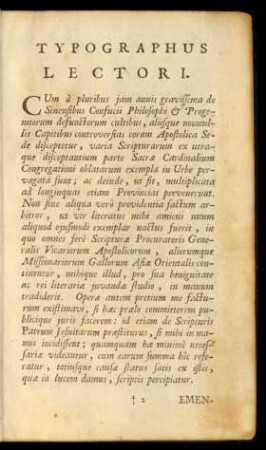 TYPOGRAPHUS
LECTORI.
CUm à pluribus jam annis gravissima de
Sinensibus Confucii Philosophi & Proge-
nitorum defunctorum cultibus, aliisque nonnul-
lis Capitibus controversias coram Apostolica Se-
de disceptetur, varia Scripturarum ex utra-
que disceptantium parte Sacræ Cardinalium
Congregationi oblatarum exempla in Urbe per-
vagata sunt; ac deinde, ut fit, multiplicata
ad longinquas etiam Provincias pervenerunt.
Non sine aliqua verò providentia factum ar-
bitror, ut vir literatus mihi amicus unum
aliquod ejusmodi exemplar nactus fuerit, in
quo omnes ferè Scripturæ Procuratoris Gene-
ralis Vicariorum Apostolicorum, aliorumque
Missionariorum Gallorum Asiæ Orientalis con-
tinentur, mihique illud, pro sua benignitate
ac rei literariæ juvandæ studio, in manum
tradiderit. Operæ autem pretium me factu-
rum existimavi, si hæc prælo committerem
publicique juris facerem: id etiam de Scripturis
Patrum Jesuitarum præstiturus, si mihi in ma-
nus incidissent; quamquam hæ minimè neces-
sariæ videantur, cum earum summa hîc refe-
ratur, totiusque causæ status satis ex istis,
quæ in lucem damus, scriptis percipiatur.
† 2 EMEN-